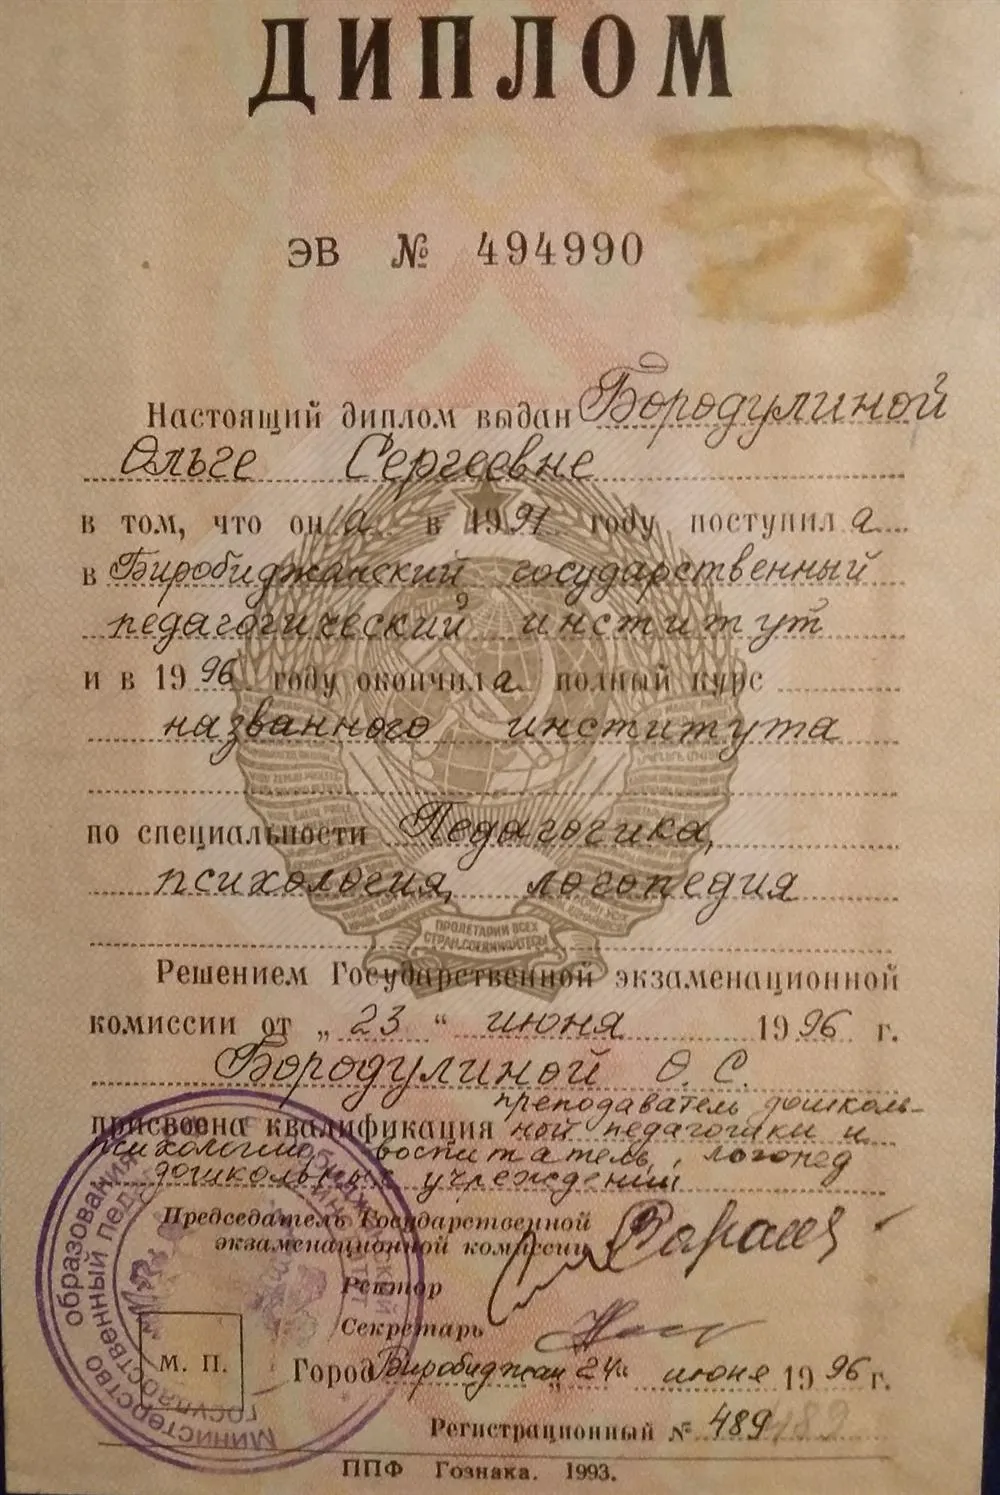 ДИПЛОМ
ЭВ № 494990
Настоящий диплом выдан Бородулиной
Ольге Сергеевне
в том, что она в 1991 году поступила
в Биробиджанский государственный
педагогический институт
и в 1996 году окончила полный курс
названного института
по специальности Педагогика,
психология, логопедия
ПРОЛЕТАРИИ ВСЕХ
СТРАН, СОЕДИНЯЙТЕСЬ!
Решением Государственной экзаменационной
комиссии от „23“ июня 1996 г.
Бородулиной О. С.
преподаватель дошколь-
присвоена квалификация ной педагогики и
психологии, воспитатель, логопед
дошкольных учреждений
Председатель Государственной
экзаменационной комиссии
Ректор
Секретарь
М. П.
Город Биробиджан „24“ июня 1996 г.
Регистрационный № 489
Министерство образования
государственный пед
ППФ Гознака. 1993.